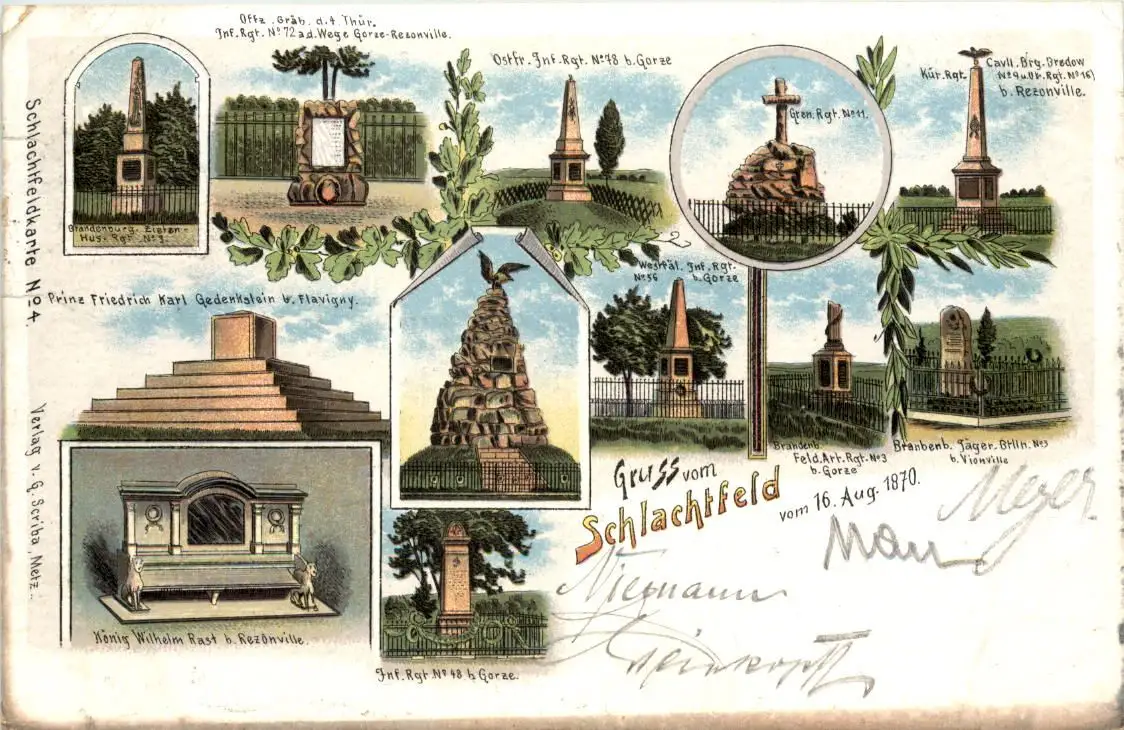 Offz. Gräb. d. 4. Thür.
Inf. Rgt. No 72 a.d. Wege Gorze-Rezonville.
Ostfr. Inf. Rgt. No 78 b. Gorze
Gren. Rgt. No 11.
Kür. Rgt.
Cavll. Brg. Bredow
b. Rezonville.
Brandenburg. Zieten-
Hus. Rgt. No 3.
Schlachtfeldkarte No. 4.
Verlag v. G. Scriba, Metz.
Prinz Friedrich Karl Gedenkstein b. Flavigny.
Westfäl. Inf. Rgt.
No 56 b. Gorze
Brandenb.
Feld. Art. Rgt. No 3
b. Gorze
Branbenb. Jäger. Btlln. No 3
b. Vionville
König Wilhelm Rast b. Rezonville.
Inf. Rgt. No 48 b. Gorze.
Gruss vom
Schlachtfeld
vom 16. Aug. 1870.
Meyer
Niemann